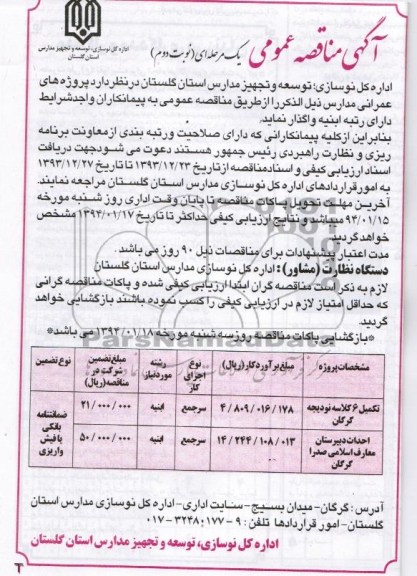 آگهی مناقصه عمومی یک مرحله‌ای (نوبت دوم)
اداره کل نوسازی، توسعه و تجهیز مدارس
استان گلستان
اداره کل نوسازی، توسعه و تجهیز مدارس استان گلستان در نظر دارد پروژه های
عمرانی مدارس ذیل الذکر را از طریق مناقصه عمومی به پیمانکاران واجد شرایط
دارای رتبه ابنیه واگذار نماید.
بنابر این از کلیه پیمانکارانی که دارای صلاحیت و رتبه بندی از معاونت برنامه
ریزی و نظارت راهبردی رئیس جمهور هستند دعوت می شود جهت دریافت
اسناد ارزیابی کیفی و اسناد مناقصه از تاریخ ۱۳۹۳/۱۲/۲۳ تا تاریخ ۱۳۹۳/۱۲/۲۷
به امور قراردادهای اداره کل نوسازی مدارس استان گلستان مراجعه نمایند.
آخرین مهلت تحویل پاکات مناقصه تا پایان وقت اداری روز شنبه مورخه
۹۴/۰۱/۱۵ میباشد و نتایج ارزیابی کیفی حداکثر تا تاریخ ۱۳۹۴/۰۱/۱۷ مشخص
خواهد گردید.
مدت اعتبار پیشنهادات برای مناقصات ذیل ۹۰ روز می باشد.
دستگاه نظارت (مشاور): اداره کل نوسازی مدارس استان گلستان
لازم به ذکر است مناقصه گران ابتدا ارزیابی کیفی شده و پاکات مناقصه گرانی
که حداقل امتیاز لازم در ارزیابی کیفی را کسب نموده باشند بازگشایی خواهد
گردید.
*بازگشایی پاکات مناقصه روز سه شنبه مورخه ۱۳۹۴/۰۱/۱۸ می باشد*
مشخصات پروژه مبلغ برآورد کار (ریال) نوع اجرای کار رشته مورد نیاز مبلغ تضمین شرکت در مناقصه (ریال) نوع تضمین
تکمیل ۶ کلاسه نودیجه گرگان ۴/۸۰۹/۰۱۶/۱۷۸ سرجمع ابنیه ۲۱۰/۰۰۰/۰۰۰ ضمانتنامه بانکی یا فیش واریزی
احداث دبیرستان معارف اسلامی صدرا گرگان ۱۴/۲۴۴/۱۰۸/۰۱۳ سرجمع ابنیه ۵۰۰/۰۰۰/۰۰۰
آدرس: گرگان-میدان بسیج-سایت اداری-اداره کل نوسازی مدارس استان
گلستان-امور قراردادها تلفن: ۹-۳۲۴۸۰۱۷۷-۰۱۷
اداره کل نوسازی، توسعه و تجهیز مدارس استان گلستان